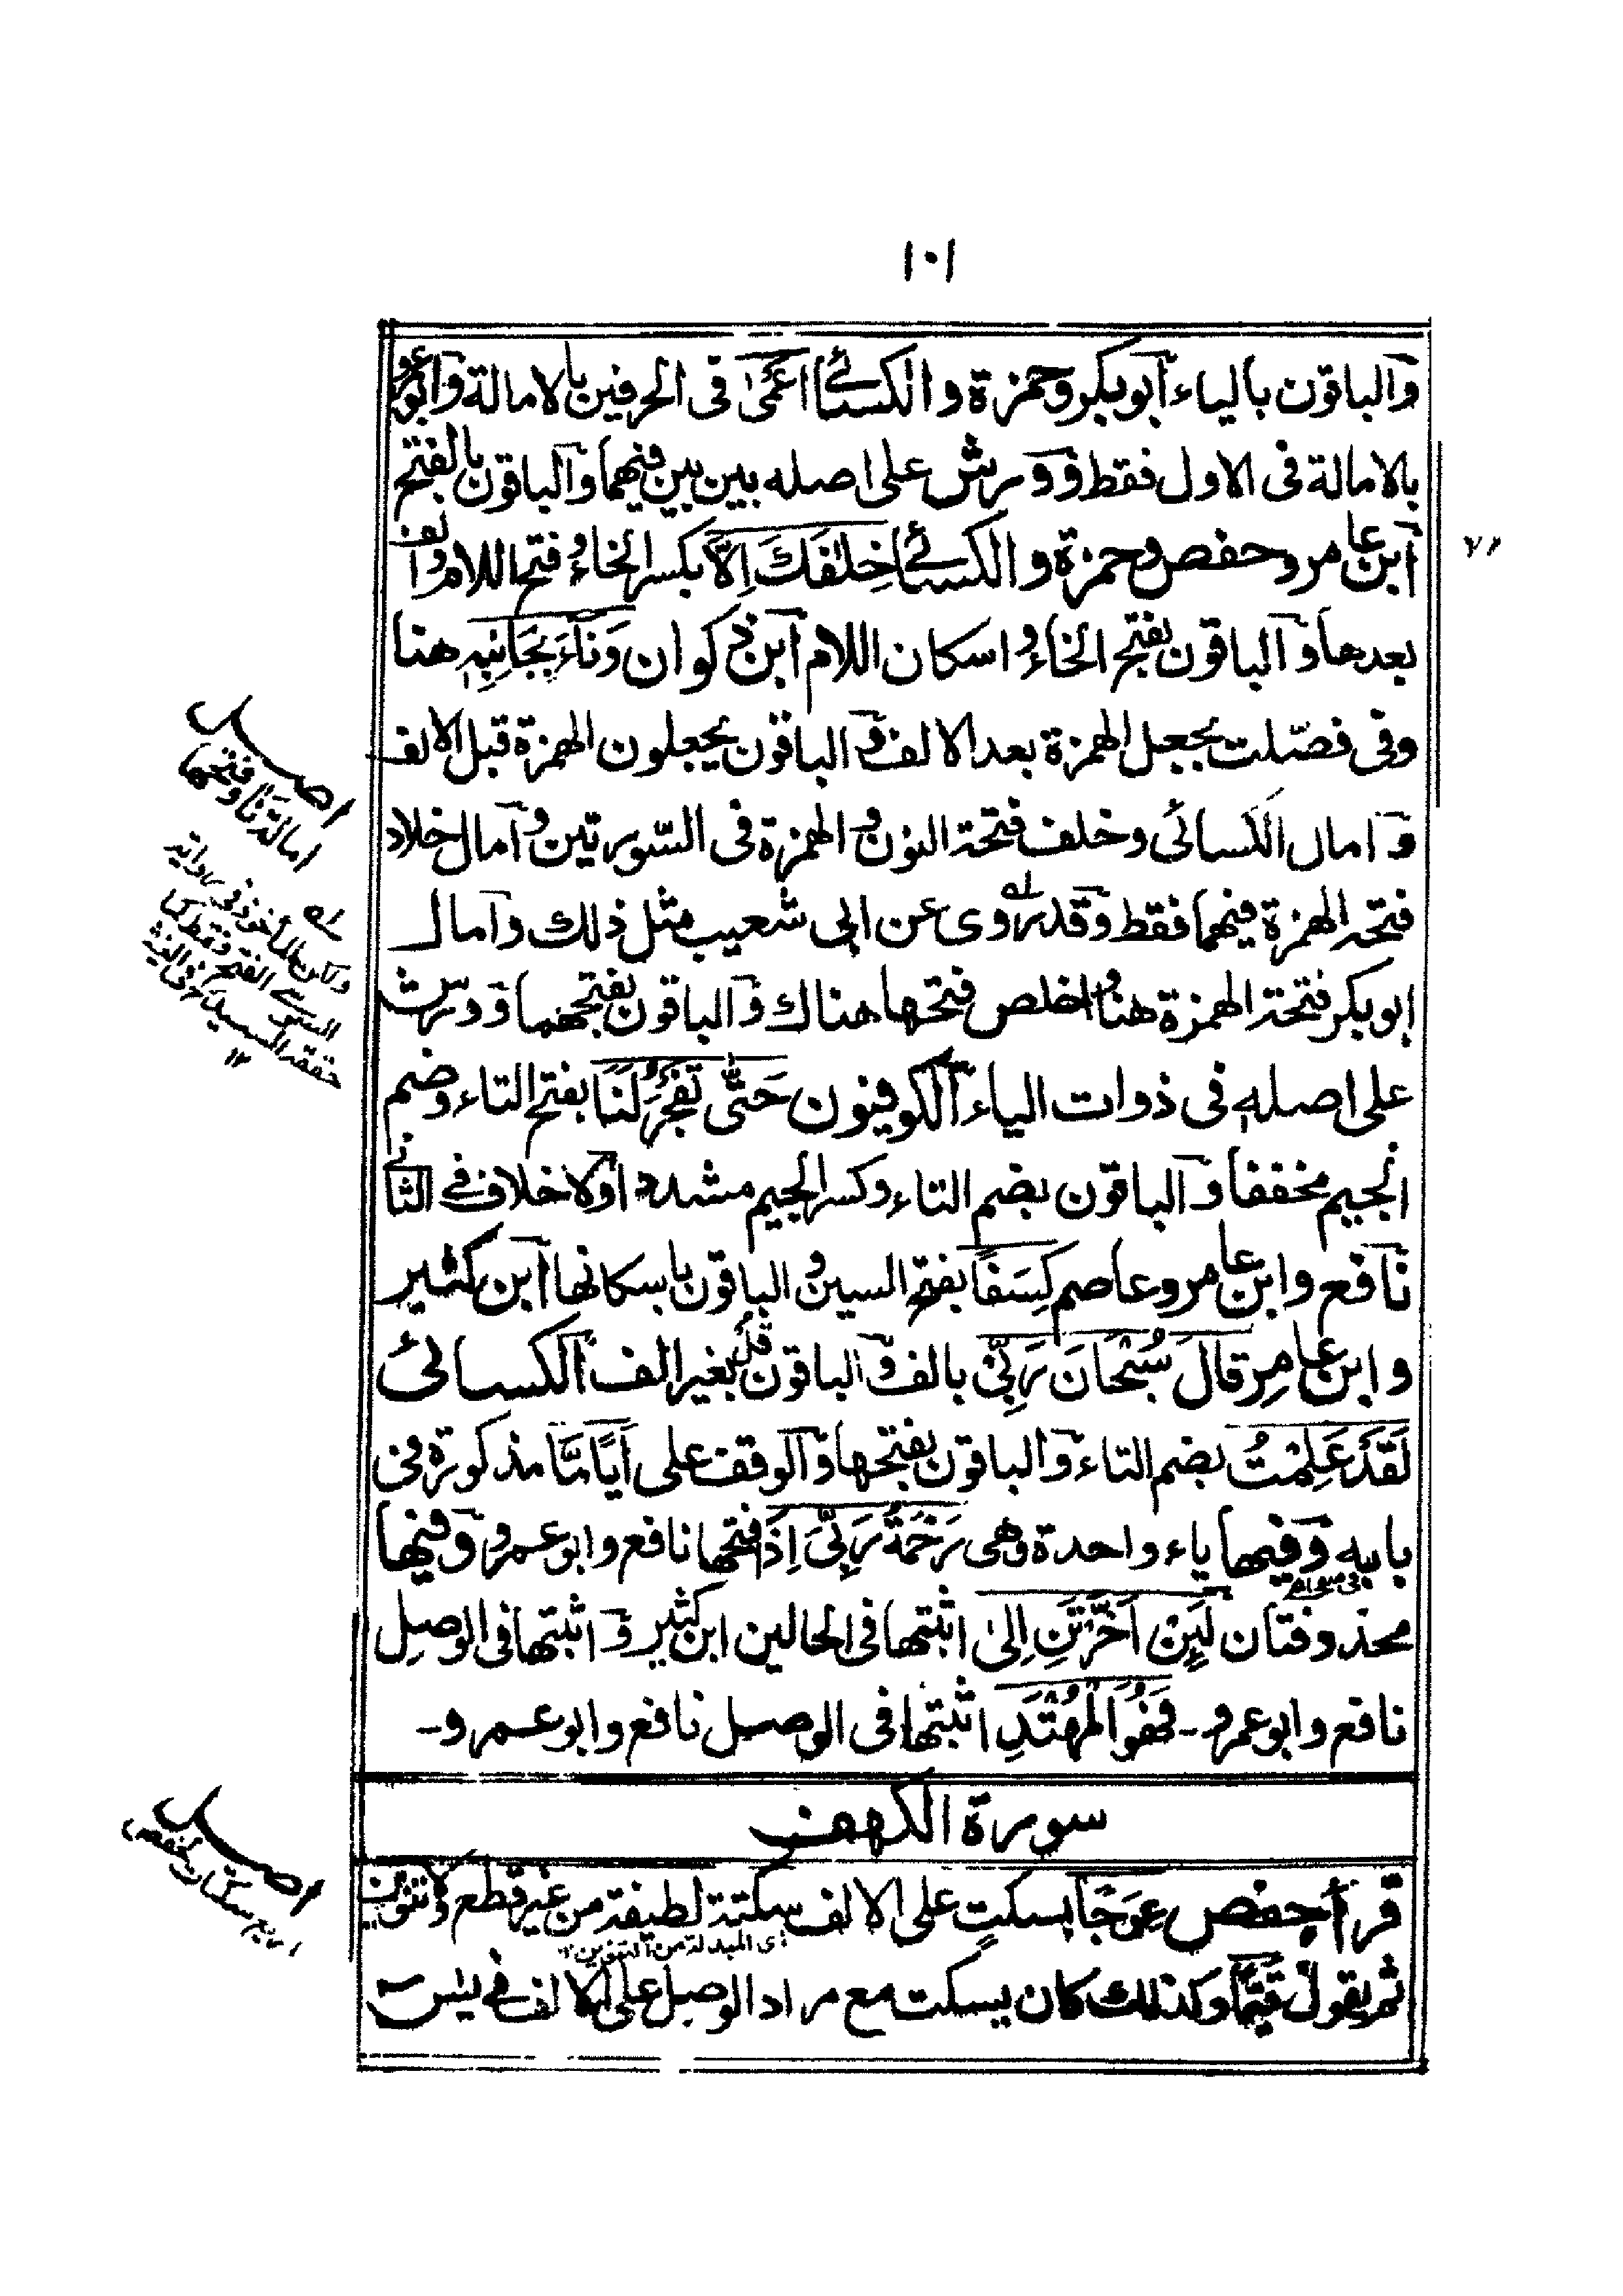 ١٠١
والباقون بالياء ابو بكر وحمزة والكسائے اعمٰى فى الحرفين بالامالة وابو عمرو
بالامالة فى الاول فقط وورش على اصله بين بين فيهما والباقون بالفتح
ابن عامر وحفص وحمزة والكسائے خِلٰفَكَ اِلَّا بكسر الخاء وفتح اللام والف
بعدها والباقون بفتح الخاء واسكان اللام ابن ذكوان وَنَاءَ بِجَانِبِهٖ هنا
وفى فصّلت يجعل الهمزة بعد الالف والباقون يجعلون الهمزة قبل الالف
و امال الكسائى وخلف فتحة النون والهمزة فى السّورتين وامال خلاد
فتحة الهمزة فيهما فقط وقد روى عن ابى شعيب مثل ذلك وامال
ابو بكر فتحة الهمزة هنا واخلص فتحها هناك والباقون بفتحهما وورش
على اصلهٖ فى ذوات الياء الكوفيون حَتّٰى تَفْجُرَ لَنَا بفتح التاء وضم
الجيم مخففا والباقون بضم التاء وكسر الجيم مشددا ولا خلاف فے الثانے
نافع وابن عامر وعاصم كِسَفًا بفتح السين والباقون باسكانها ابن كثير
وابن عامر قَالَ سُبْحَانَ رَبِّىْ بالف والباقون قُلْ بغير الف الكسائى
لَقَدْ عَلِمْتُ بضم التاء والباقون بفتحها والوقف على اَيًّا مَّا مذكورة فى
بابه وفيها ياء واحدة وهى رَحْمَةِ رَبِّىْ اِذًا فتحها نافع وابو عمرو وفيها
محذوفتان لَئِنْ اَخَّرْتَنِ اِلىٰ اثبتها فى الحالين ابن كثير و اثبتها فى الوصل
نافع وابو عمرو ـ فَهُوَ الْمُهْتَدِ اثبتها فى الوصل نافع وابو عمرو ـ
سورة الكهف
قرأ حفص عِوَجًا يسكت على الالف سكتة لطيفة من غير قطع ولا تنوين
اى المبدلة من التنوين ١٢
ثم يقول قَيِّمًا وكذلك كان يسكت مع مراد الوصل على الالف فے يٰس
اصل
امالة نا وفتحها
له
ولكن المأخوذ فى رواية
السوسے الفتح فقط كما
حققه السيد فى الغيث
١٢
اصل
اربع سكتات لحفص